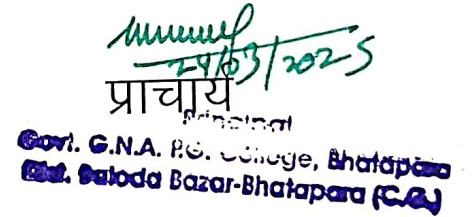 24/03/2025
प्राचार्य
Principal
Govt. G.N.A. P.G. College, Bhatapara
Dist. Baloda Bazar-Bhatapara (C.G.)